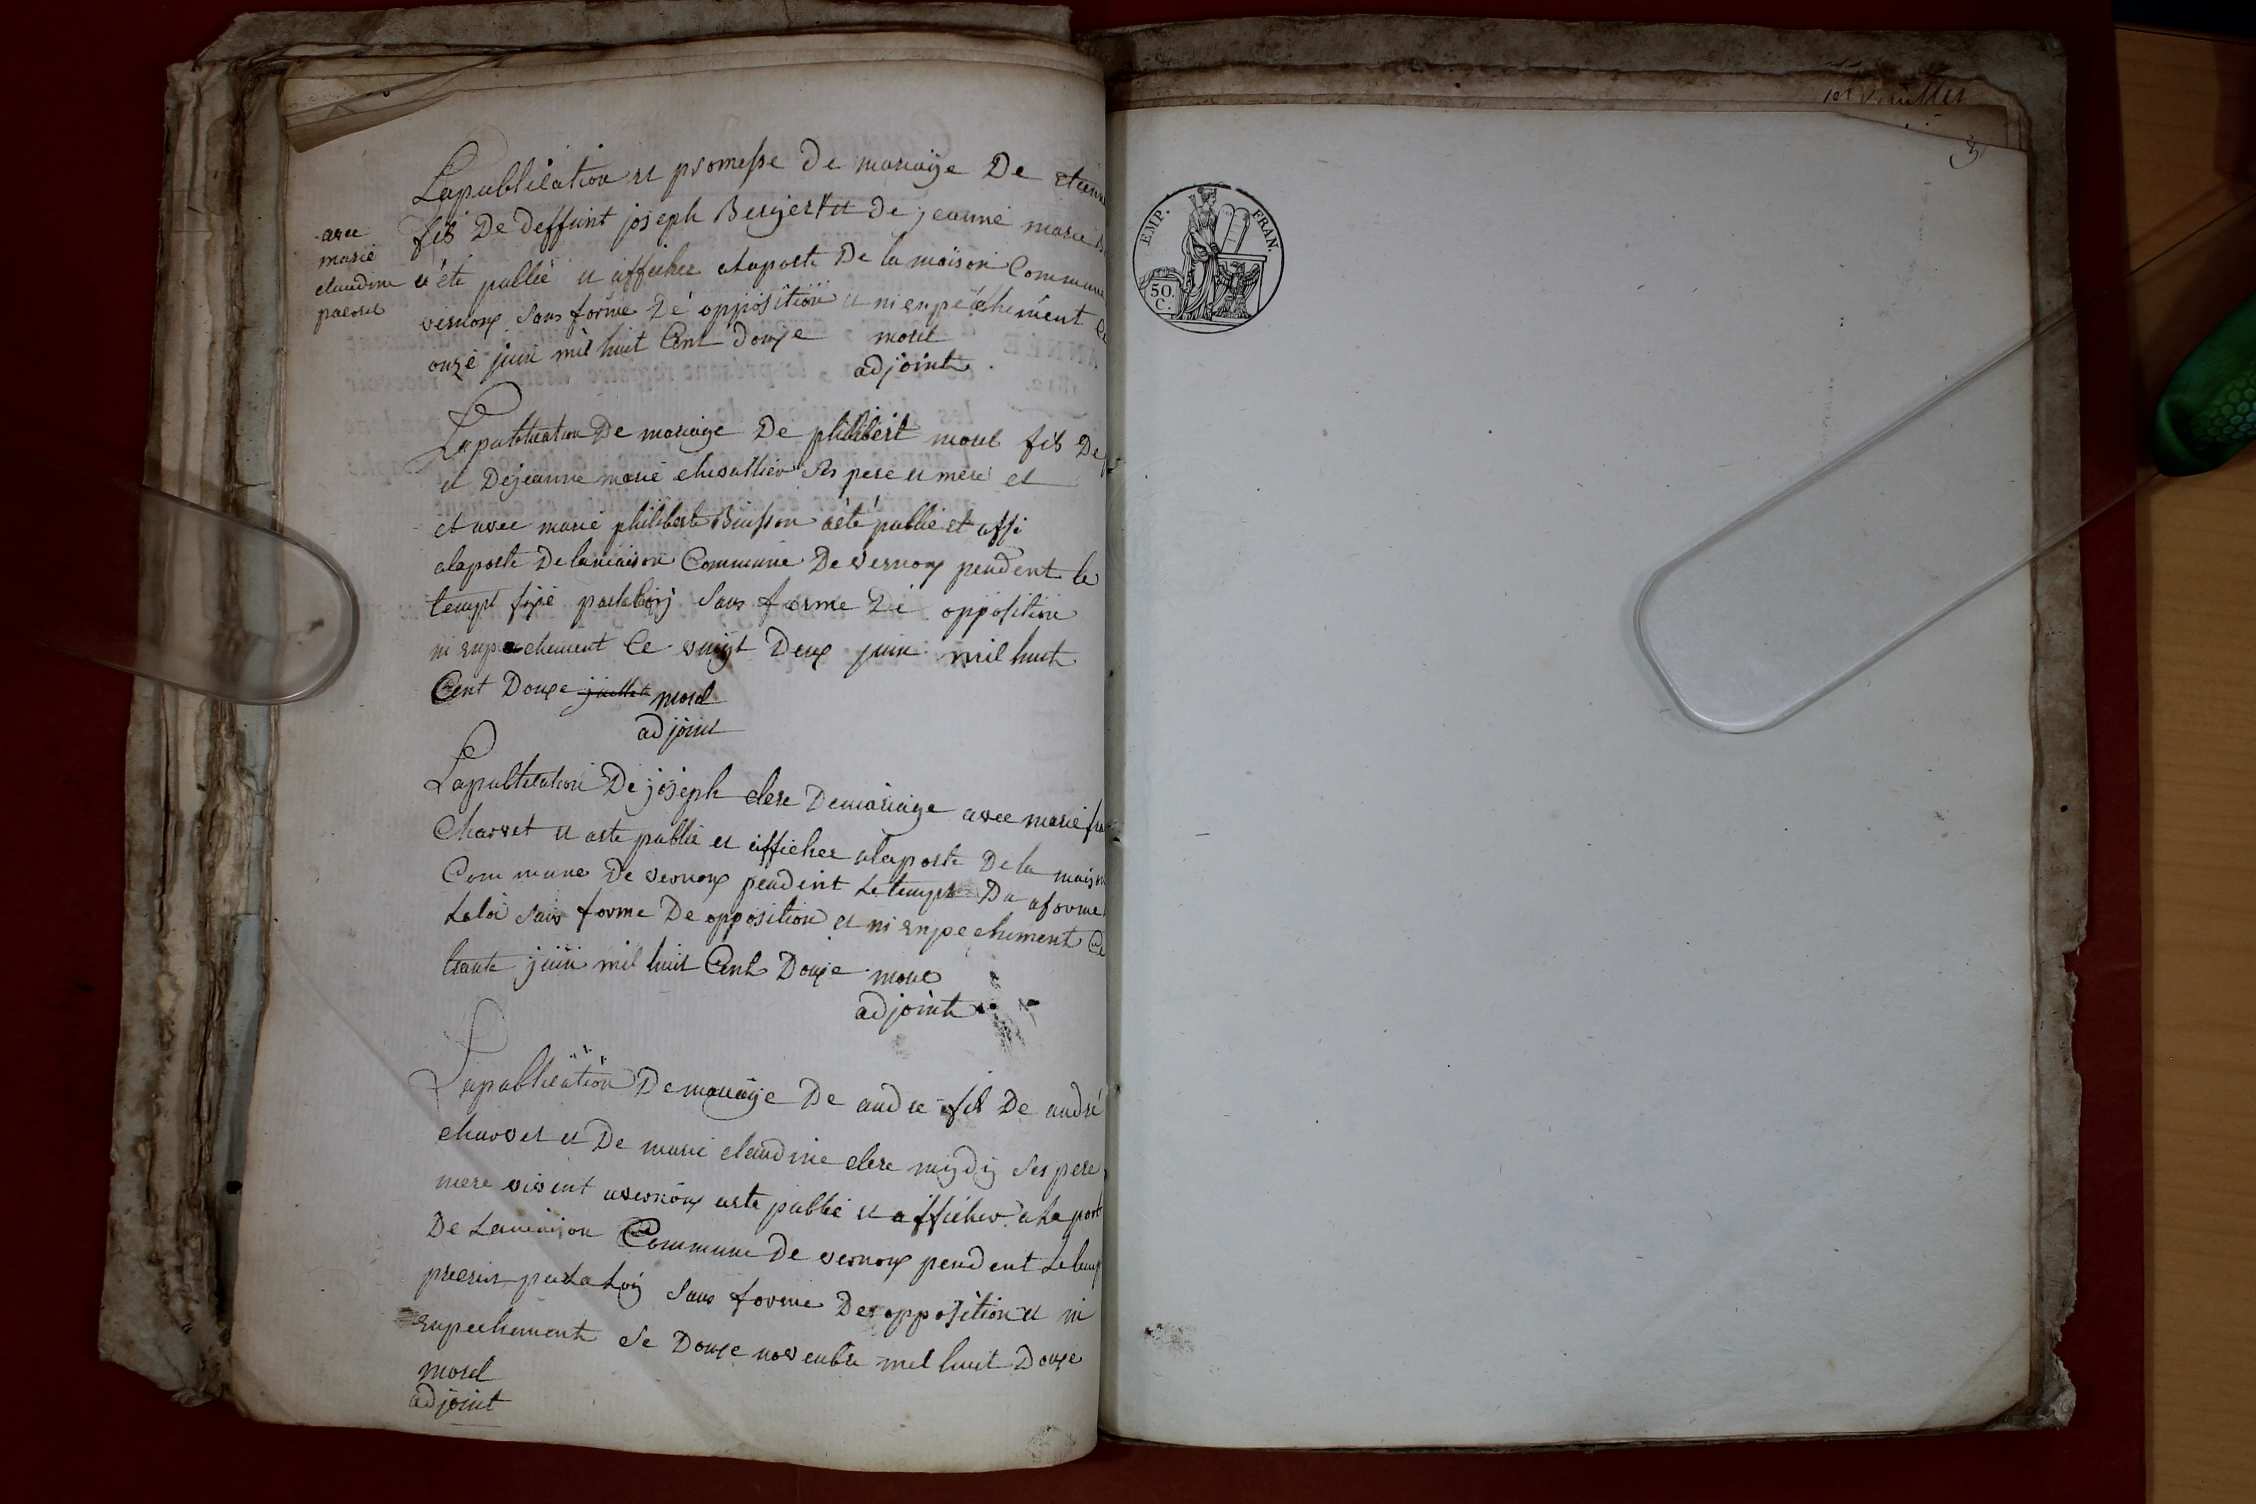 La publication et promesse de mariage De etienne
fils De deffunt joseph Bergeret De jeanne marie
avec
marie
claudine
a éte publié et afficher alaporte De la maison Commune
vernoux sans forme De opposition et ni enpechement Ce
onze juin mil huit Cent douze morel
adjoint
La publication De mariage De philibert morel fils De
et De jeanne marie chevallier Ses pere et mere et
et avec marie philiberte Buisson aété publié et affi
alaporte De lamaison Commune De vernoux pendent le
tempt fixé parlaloij Sans forme De opposition
ni enpechement Ce vingt Deux juin mil huit
Cent Douze juillet morel
adjoint
La publication De joseph clerc Demariage avec marie
Charvet et aete publié et afficher alaporte De la maison
Commune De vernoux pendent Le tempt Du aforme
Laloi Sans forme De opposition et ni enpechement Ce
trante juin mil huit Cent Douze morel
adjoint
La publication De mariage De andre fils De andré
charvet et De marie claudine clerc Ses pere
mere vivent avernoux aete publié et afficher ala port
De Lamaison Commune De vernoux pendent Le temp
precrit par La Loij Sans forme De opposition et ni
enpechement Se Douze novenbre mil huit Douze
morel
adjoint
3
EMP. FRAN.
50.
C.